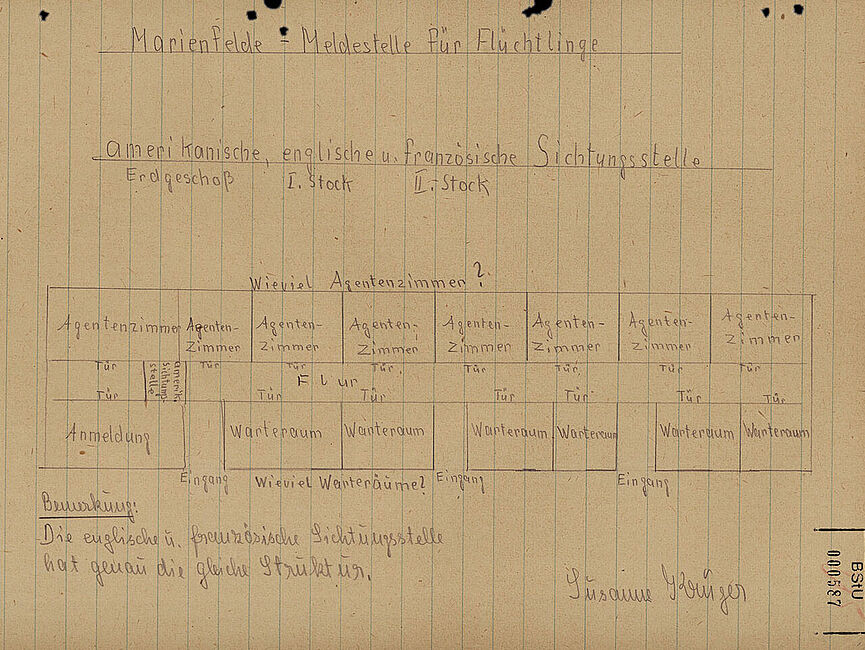 Marienfelde = Meldestelle für Flüchtlinge
amerikanische, englische u. französische Sichtungsstelle
Erdgeschoß I. Stock II. Stock
Wieviel Agentenzimmer?
Agentenzimmer Agenten- Agenten- Agenten- Agenten- Agenten- Agenten- Agenten-
Zimmer Zimmer Zimmer Zimmer Zimmer Zimmer Zimmer
Tür Tür Tür Tür Tür Tür Tür Tür
amerik.
Sichtungs-
stelle
Flur
Tür Tür Tür Tür Tür Tür Tür
Anmeldung Warteraum Warteraum Warteraum Warteraum Warteraum Warteraum
Eingang Wieviel Warteräume? Eingang Eingang
Bemerkung:
Die englische u. französische Sichtungsstelle
hat genau die gleiche Struktur.
Susanne Krüger
BStU
000587